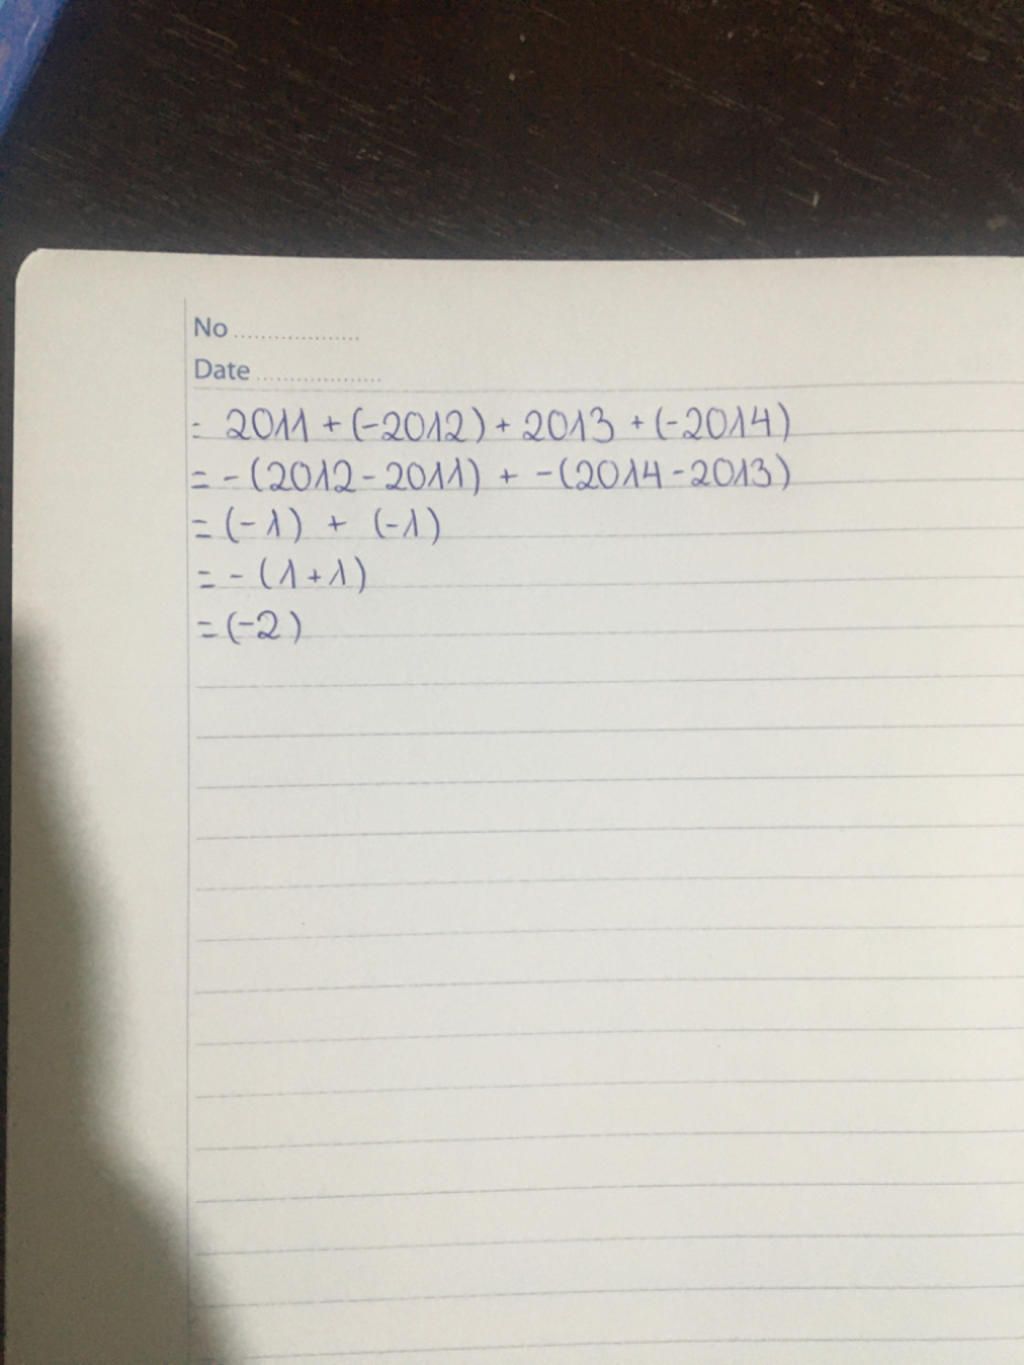 No
Date
= 2011 + (-2012) + 2013 + (-2014)
= - (2012 - 2011) + - (2014 - 2013)
= (-1) + (-1)
= - (1 + 1)
= (-2)